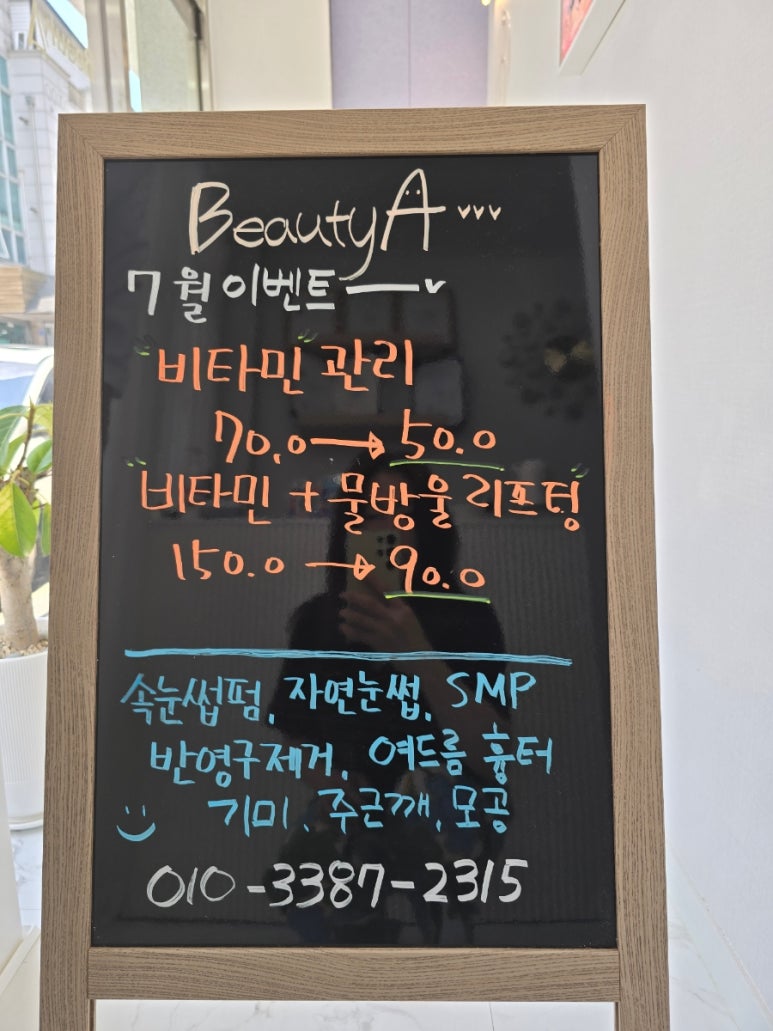 BeautyA
7월 이벤트
"비타민" 관리
70.0 → 50.0
"비타민 + 물방울 리프텅"
150.0 → 90.0
속눈썹펌, 자연눈썹, SMP
반영구제거, 여드름 흉터
기미, 주근깨, 모공
010-3387-2315